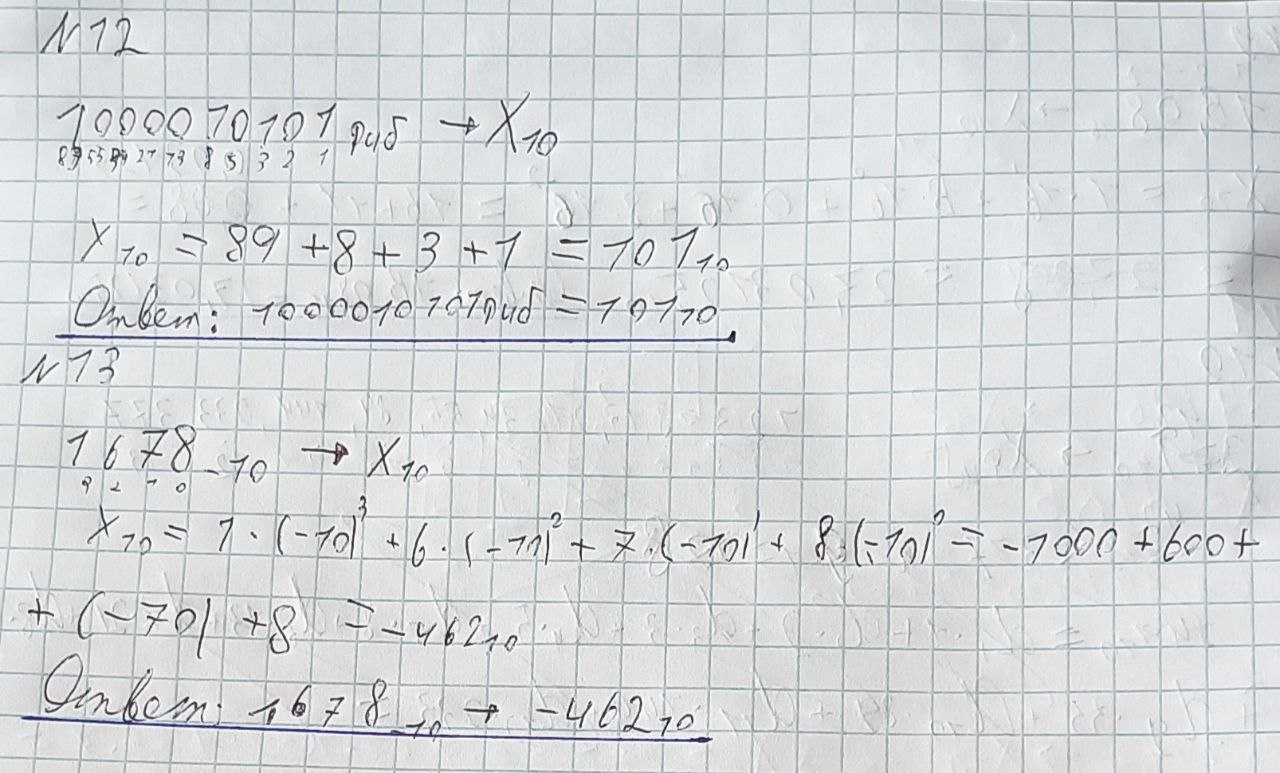 N12
1000010101фиб → X₁₀
89 55 34 21 13 8 5 3 2 1
X₁₀ = 89 + 8 + 3 + 1 = 101₁₀
Ответ: 1000010101фиб = 101₁₀.
N13
1678₋₁₀ → X₁₀
3 2 1 0
X₁₀ = 1·(-10)³ + 6·(-10)² + 7·(-10)¹ + 8·(-10)⁰ = -1000 + 600 +
+ (-70) + 8 = -462₁₀.
Ответ: 1678₋₁₀ → -462₁₀